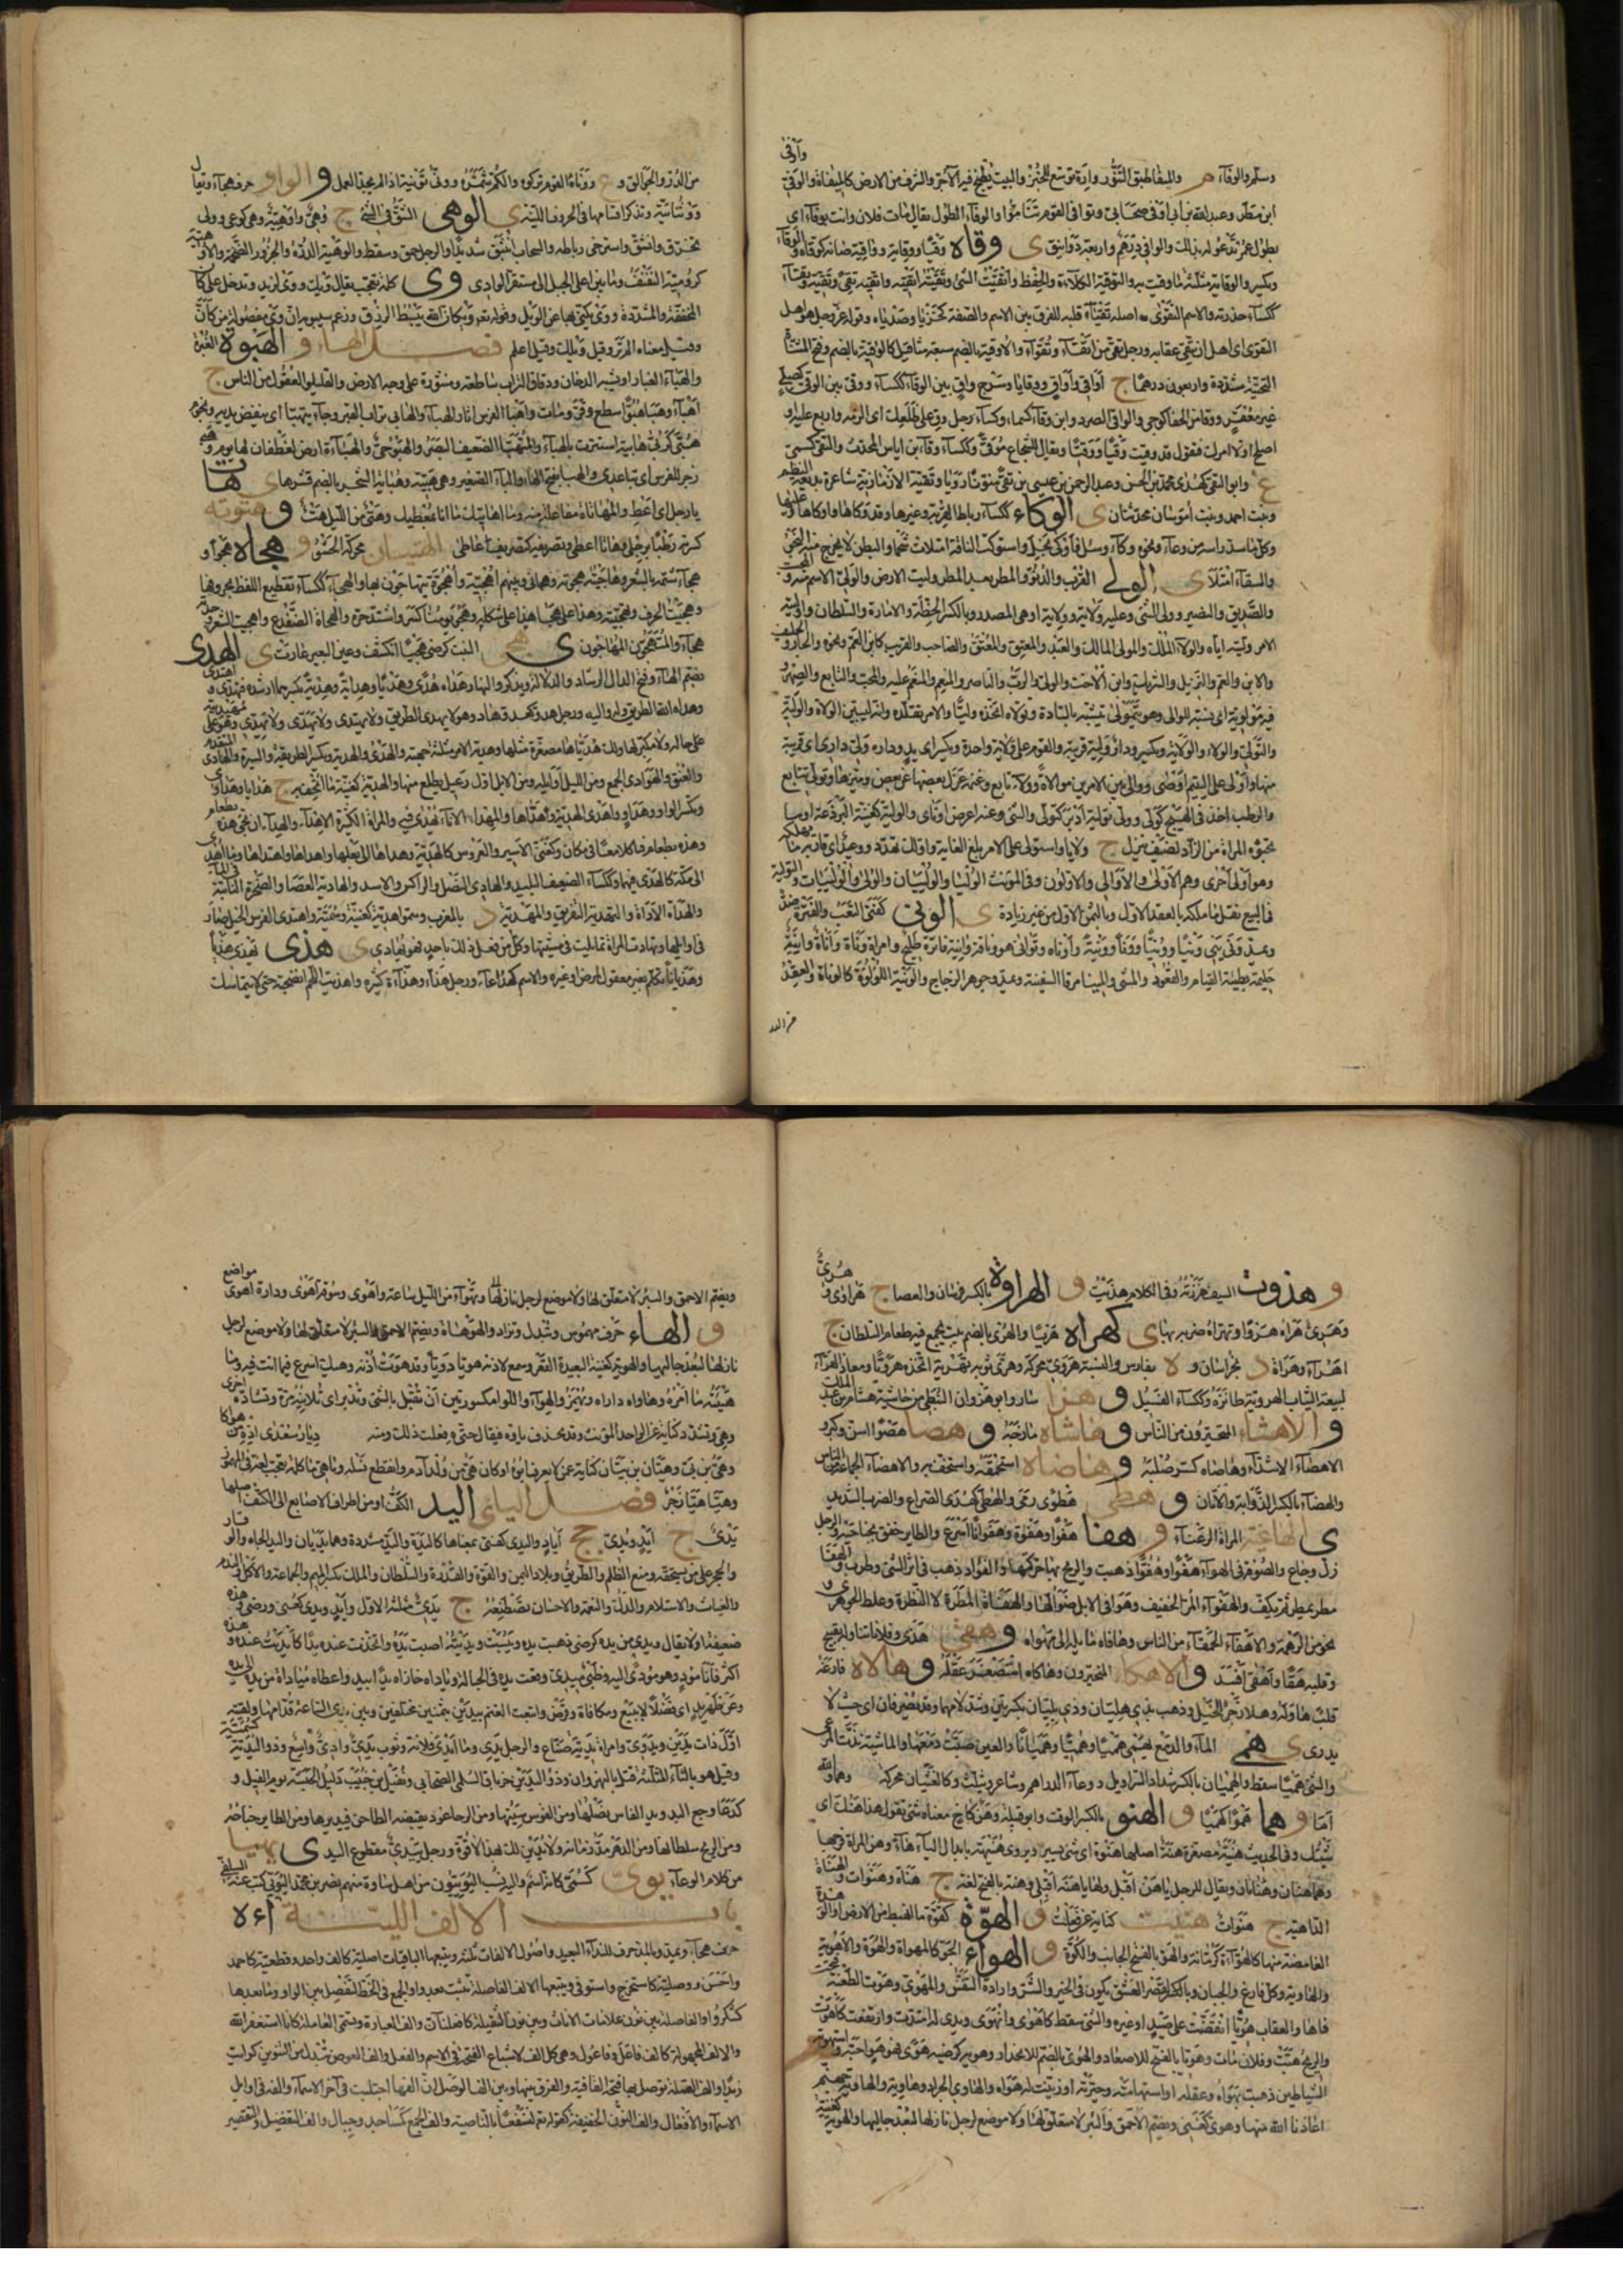 وأوفى
وسلم والوفاء م والميفا طبق التنور وإرة توسع للخبز والبيت يطبخ فيه الآجر والشرف من الارض كالميفاة والوفى
ابن مطر وعبد الله بن أبي أوفى صحابي وتوافى القوم تتاموا والوفاء الطول يقال مات فلان وانت بوفاء اي
بطول عمر تدعو له بذلك والوافي درهم واربعة دوانيق ى وقاه وقيا ووقاية وواقية صانه كوقاه والوقاء
ويكسر والوقاية مثلثة ما وقيت به والتوقية الكلاءة والحفظ واتقيت الشئ وتقيته اتقيه واتقيه تقى وتقية وتقاء
ككساء حذرته والاسم التقوى اصله تقيا قلبوه للفرق بين الاسم والصفة كخزيا وصديا وقوله عز وجل هو اهل
التقوى اي اهل ان يتقى عقابه ورجل تقي من اتقياء وتقواء والاوقية بالضم سبعة مثاقيل كالوقية بالضم وفتح المثناة
التحتية مشددة واربعون درهما ج أواقي وأواق ووقايا وسرج واق بين الوقاء ككساء ووقي بين الوقي كصلي
غير معقر ووقى من الحفا كوجي والواقي الصرد وابن وقاء كسماء وكساء رجل وق على ظلعك اي الزمه واربع عليه او
اصلح اولا امرك فتقول قد وقيت وقيا ووقيا ويقال للشجاع موقى وككساء وقاء بن اياس المحدث والتقى كسمي
ع وابو التقى كهدى محمد بن الحسن وعبد الرحمن بن عيسى بن تقي منونا رويا وتقية الارمنازية شاعرة بديعة النظم
وبنت احمد وبنت أموسان محدثتان ى الوكاء ككساء رباط القربة وغيرها وقد وكاها واوكاها وعليها
وكل ما سد راسه من وعاء ونحوه وكاء وسئل فأوكى بخل واستوكت الناقة امتلات شحما والبطن لا يخرج منه النجو
والسقاء امتلأ ى الولي القرب والدنو والمطر بعد المطر وليت الارض والولي الاسم منه والمحب
والصديق والنصير وولي الشئ وعليه ولاية وولاية او هي المصدر وبالكسر الخطة والامارة والسلطان واوليته
الامر وليته اياه والولاء الملك والمولى المالك والعبد والمعتق والمعتق والصاحب والقريب كابن العم ونحوه والجار والحليف
والابن والعم والنزيل والشريك وابن الاخت والولي والرب والناصر والمنعم والمنعم عليه والمحب والتابع والصهر
فيه مولوية اي يشبه الموالي وهو يتمولى يتشبه بالسادة وتولاه اتخذه وليا والامر تقلده وانه لبين الولاة والولية
والتولي والولاء والولاية ويكسر ودار ولية قريبة والقوم على ولاية واحدة ويكسر اي يد وداره ولي داري اي قريبة
منها واولى على اليتيم اوصى ووالى بين الامرين موالاة وولاء تابع وغنمه عزل بعضها عن بعض وميزها وتوالى تتابع
والرطب اخذ في الهيج كولى وولى تولية ادبر كتولى والشئ وعنه اعرض او نأى والولية كغنية البرذعة او ما
تخبؤه المراة من الزاد لضيف ينزل ج ولايا واستولى على الامر بلغ الغاية واولى لك تهدد ووعيد اي قاربه ما يهلكه
وهو أولى أحرى وهم الاولى والأوالي والاولون وفي المؤنث الوليا والولييان والولى والولييات والتولية
في البيع نقل ما ملكه بالعقد الاول وبالثمن الاول من غير زيادة ى الونى كفتى التعب والفترة ضد
ويمد ونى يني ونيا وونيا وونى وونية وأوناه وتوانى هو وناقة وانية فاترة طليح وامراة وناة وأناة وانية
حليمة بطيئة القيام والقعود والمشي والمينا مرفأ السفينة ويمد وجوهر الزجاج والونية اللؤلؤة كالوناة والعقد
من الدر
من الدر والجوالق و ع وونأه القوم تركوه والكم شمره وونى تونية اذا لم يجد العمل و الواو حرف هجاء ويقال
ووثنائية وتذكر اقسامها في الحروف اللينة ى الوهي الشق في الشئ ج وهي واوهية وهى كوعى وولي
تخرق وانشق واسترخى رباطه والسحاب انبثق شديدا والرجل حمق وسقط والوهية الدرة والجزور الضخمة والاوهية
كرومية النفنف وما بين اعلى الجبل الى مستقر الوادي وى كلمة تعجب يقال ويك ووى لزيد وتدخل على كأن
المخففة والمشددة ووى يكنى بها عن الويل وقوله تعالى ويكأن الله يبسط الرزق وزعم سيبويه ان وى مفصولة من كأن
وقيل معناه الم تر وقيل ويلك وقيل اعلم فصل الهاء و الهبوة الغبرة
والهباء الغبار او يشبه الدخان ودقاق التراب ساطعة ومنثورة على وجه الارض والقليلو العقول من الناس ج
اهباء وهبا هبوا سطع وفر ومات واهبأ الفرس اثار الهباء والهابي تراب القبر وجاء يتهبا اي ينفض يديه ونحوه
زجر للفرس اي تباعدي والهبي بفتح الهاء والباء الصغير وهي هبية
يا رجل اي اعط والمهاتاة مفاعلة منه وما اهاتيك ما انا بمعطيك وهتئ من الليل هتء و هتوته
كسرته وطئا برجلي ى الهتيان محركة الحشو و هجاه هجوا و
هجاء شتمه بالشعر وهاجيته هجوته وهجاني وبينهم اهجية وأهجوة يتهاجون بها والهجاء ككساء تقطيع اللفظ بحروفها
وهجيت الحرف وتهجيته وهذا على هجا هذا على شكله وهجو يومنا كسرو اشتد حره والهجاة الضفدع واهجيت الشعر وجدته
هجاء والمهتجون المهاجون ى هجي البيت كرضي هجيا انكشف وعين البعير غارت ى الهدى
بضم الهاء وفتح الدال الرشاد والدلالة ويذكر والنهار هداه هدى وهديا وهداية وهدية بكسرهما ارشده فهدي واهتدى
وهداه الله الطريق وله واليه ورجل هدو كعدو هاد وهو لا يهدي الطريق ولا يهتدي ولا يهدي ولا يهدي وهو على مهيديته
على حاله ولا مكبر لها ولك هديا هذا مصغرة مثلها وهدية الامر مثلثة جهته والهدى والهدية ويكسر الطريقة والسيرة والهادي المتقدم
والعنق والهوادي الجمع ومن الليل أوائله ومن الابل اول رعيل يطلع منها والهدية كغنية ما اتحف به ج هدايا وهداوى
وتكسر الواو وهداو واهدى الهدية وهداها والمهدى الاناء يهدى فيه والمراة الكثيرة الاهداء والهداء ان تجئ هذه بطعام
وهذه بطعام فتاكلا معا في مكان وكغني الاسير والعروس كالهدية وهداها الى بعلها واهداها واهتداها وما اهدي
الى مكة كالهدي فيهما وككساء الضعيف البليد والهادي النصل والراكس والاسد والهادية العصا والصخرة الناتئة في الماء
والهداة الاداة والتهدية التفريق والمهدية د بالمغرب وسموا هدية كغنية وسمية واهتدى الفرس الخيل صار
في اوائلها وتهادت المراة تمايلت في مشيتها وكل من فعل ذلك باحد فهو يهاديه ى هذى يهذي هذيا
وهذيانا تكلم بغير معقول لمرض او غيره والاسم كدعاء ورجل هذاء وهذاءة كثيره واهذيت اللحم انضجته حتى لا يتماسك
و هذوت السيف هززته وفي الكلام هذيت و الهراوة بالكسر فرس والعصا ج هراوى وهري
وهري هراه هروا وتهراه ضربه بها ى كهراه هريا والهري بالضم بيت يجمع فيه طعام السلطان ج
اهراء وهراة د بخراسان و ة بفارس والنسبة هروي محركة وهرى ثوبه تهرية اتخذه هرويا ومعاذ الهراء
لبيعه الثياب الهروية وككساء الفسيل و هزا سار وابو هزوان النبطي من حاشية هشام بن عبد الملك
و الاهشاء المتحيرون من الناس و هاشاه مازحه و هصا هصوا اسن وكبر و
الاهصاء الاشداء وهاصاه كسر صلبه و هاضاه استحمقه واستخف به والاهضاء الجماعات من الناس
والهضاء بالكسر الذؤابة والاتان و هطى هطوى رمى والهطى كهدى الصراع والضرب الشديد
ى الهاغية المراة الرعناء و هفا هفوا وهفوة وهفوانا اسرع والطاير خفق بجناحيه والرجل
زل وجاع والصوفة في الهواء هفوا وهفوا ذهبت والريح بها حركتها والفؤاد ذهب في اثر الشئ وطرب والهفا
مطر يمطر ثم يكف والهفو المر الخفيف وهوافي الابل ضوالها والهفاة المطرة لا النظرة وغلط الجوهري و
نحو من الرهمة والاهفاء الحمقاء من الناس وهافاه مايله الى هواه و هقى هذى وفلانا تناوله بقبيح
وقلبه هقا واهقى افسد و الاهكاء المتحيرون وهاكاه استصغر عقله و هالاه فازعه
قلبت هاوله وهلا زجر للخيل وذهب بذي هليان وذي بليان بكسرتين وشد لامهما وقد يصرفان اي حيث لا
يدرى ى همى الماء والدمع يهمي هميا وهميا وهميانا والعين صبت دمعها والماشية ندت للرعي
والشئ هميا سقط والهميان بالكسر شداد السراويل ووعاء الدراهم وشاعر ويثلث وكالغثيان محركة وهما والله
اما و هما هموا كهميا و الهنو بالكسر الوقت وابو قبيلة وهن كاخ معناه شئ تقول هذا هنك اي
شيئك وفي الحديث هنية مصغرة هنة اصلها هنوة اي شئ يسير ويروى هنيهة بابدال الياء هاء وهن المراة فرجها
وهما هنان وهنانان ويقال للرجل يا هن اقبل ولها يا هنة اقبلي وهنت بالفتح لغة ج هنات وهنوات والهناة
الداهية ج هنوات هنيت كناية عن فعلت و الهوة كقوة ما انهبط من الارض او الوهدة
الغامضة منها كالهواءة كرمانة والهو بالفتح الجانب والكوة و الهواء الجو كالمهواة والهوة والاهوية
والهاوية وكل فارغ والجبان وبالقصر العشق يكون في الخير والشر وارادة النفس والمهوي وهوت الطعنة فتحت
فاها والعقاب هويا انقضت على صيد او غيره والشئ سقط كاهوى وانهوى ويدي له امتدت وارتفعت كأهوت
والريح هبت وفلان مات وهويا بالفتح للاصعاد والهوي بالضم للانحدار وهويه كرضيه هوى فهو هو احبه واستهوته
الشياطين ذهبت بهواه وعقله او استهامته وحيرته او زينت له هواه والهاوي الجراد وهاوية والهاوية جهنم
اعاذنا الله منها وهوى كغني ويضم الاحمق والبئر لا متعلق لها ولا موضع لرجل نازلها لبعد جاليها والهوية كغنية
ويضم الاحمق والبئر لا متعلق لها ولا موضع لرجل نازلها وتهواء من الليل ساعة واهوى وسوقة اهوى ودارة اهوى مواضع
و الهاء حرف مهموس وتبدل وتزاد والهوهاة ويضم الاحمق والبئر لا متعلق لها ولا موضع لرجل
نازلها لبعد جاليها والهوية كغنية البعيدة القعر وسمع لاذنه هويا دويا وقد هوت أذنه وهيك اسرع فيما انت فيه وما
هيئته ما امره وهاواه داراه ويهمز والهواء واللواء مكسورتين أن تقبل بالشئ وتدبر اي تلاينه مرة وتشاده اخرى
وهي وتشدد كناية عن الواحد المؤنث وقد يحذف ياؤه فيقال حتى ه فعلت ذلك ومنه ديار سعدى اذ ه من هواكا
وهي بن بي وهيان بن بيان كناية عمن لا يعرف ابوه او كان هي من ولد آدم وانقطع نسله وياهي ما كلمة تعجب لغة في المهموز
وهيا هيا زجر فصل اليائ اليد الكف او من اطراف الاصابع الى الكتف اصلها
يدي ج أيد ويدي جج أياد واليدى كفتى بمعناها كاليدة واليد مشددة وهما يديان واليد الجاه والوقار
والحجر على من يستحقه ومنع الظلم والطريق وبلاد اليمن والقوة والقدرة والسلطان والملك بكسر الميم والجماعة والاكل والندم
والغياث والاستسلام والذل والنعمة والاحسان تصطنعه ج يدي مثلثة الاول وأيد ويدي كعني ورضي وهذه
ضعيفة اولا يقال ويدي من يده كرضي ذهبت يده ويبست ويديته اصبت يده واتخذت عنده يدا كأيديت عنده وهذه
اكثر فأنا مود وهو مودى اليه وظبي ميدي وقعت يده في الحبالة وياداه جازاه يدا بيد واعطاه مياداة من يده الى يده
وعن ظهر يد اي فضلا لا ببيع ومكافأة وقرض وابتعت الغنم بيدين بثمنين مختلفين وبين يدي الساعة قدامها ولقيته
اول ذات يدين ويدوي وامراة يدية صناع والرجل يدي وما ايدى فلانة وثوب يدي وأدي واسع وذو اليدية كسمية
وقيل هو بالثاء المثلثة قتل بالنهروان وذو اليدين خرباق السلمي الصحابي ونفيل بن حبيب دليل الحبشة يوم الفيل و
كدعا وجع اليد ويد الفاس نصابها ومن القوس سيتها ومن الرحى عود يقبضه الطاحن فيديرها ومن الطاير جناحه
ومن الريح سلطانها ومن الدهر مد زمانه ولا يدين لك بهذا لا قوة ورجل ميدي مقطوع اليد ى يهيا
من كلام الرعاء يوى كسمى اليه نسب اليوييون من اهل ساوة منهم نصر بن محمد اليويي كتب عنه السلفي
باب الالف اللينة أ ء ه
حرف هجاء ويمد وبالمد حرف لنداء البعيد واصول الالفات ثلثة ويتبعها الباقيات اصلية كالف واحد وقطعية كاحمد
واحسن ووصلية كاستخرج واستوفى ويتبعها الالف الفاصلة تثبت بعد واو الجمع في الخط لتفصل بين الواو وما بعدها
كشكروا والفاصلة بين نون علامات الاناث وبين نون الثقيلة كافعلنان والف العبارة وتسمى العاملة كانا استغفر الله
والالف المجهولة كالف فاعل وفاعول وهي كل الف لاشباع الفتحة في الاسم والفعل والف العوض تبدل من التنوين كرأيت
زيدا والف الصلة توصل بها فتحة القافية والفرق بينها وبين الف الوصل ان الفها اجتلبت في آخر الاسماء والفه في اوائل
الاسماء والافعال والف النون الخفيفة كقوله تعالى لنسفعا بالناصية والف الجمع كمساجد وجبال والف التفضيل والتقصير